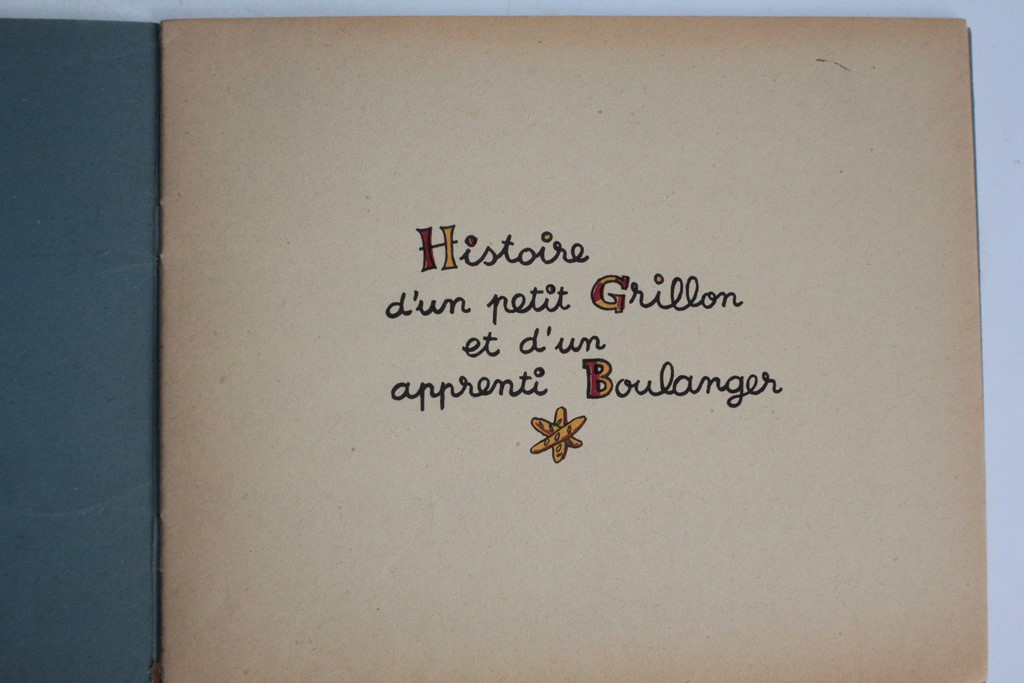 Histoire
d'un petit Grillon
et d'un
apprenti Boulanger